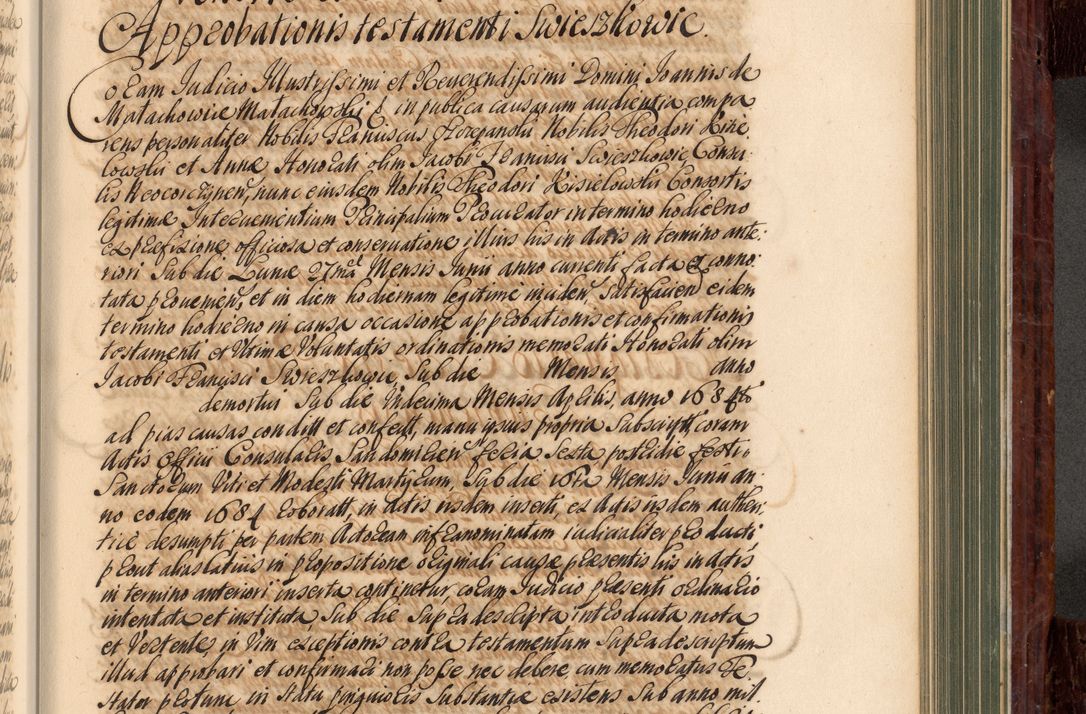 Approbationis testamenti Swieszkowic.
Coram Iudicio Illustrissimi et Reverendissimi Domini Joannis de
Małachowice Małachowski E. in publica causarum audientia compa
rens personaliter Nobilis Franciscus Nobilis Theodori Kisie
lowski et Annæ Honorati olim Jacobi Francisci Swieszkowic Consu
lis Neocorczynen, nunc eiusdem Nobilis Theodori Kisielowski Consortis
legitimæ Intervenientium Principalium Procurator in termino hodierno
ex præfixione officiosa et conservatione illius his in Actis in termino ante
riori Sub die Lunæ 27ma Mensis Junii anno currenti facta et conno
tata provenien, et in diem hodiernam legitime inciden, Satisfacien eidem
termino hodierno in causa occasione approbationis et confirmationis
testamenti et Ultimæ Voluntatis ordinationis memorati Honorati olim
Jacobi Francisci Swieszkowic, Sub die Mensis anno
demortui Sub die Undecima Mensis Aprilis, anno 1684to
ad pias causas condit et confect, manu ipsius propria Subscript, coram
Actis Officii Consularis Sandomirien feria Sexta postridie festi
Sanctorum Viti et Modesti Martyrum, Sub die 16ta Mensis Junii an
no eodem 1684 roborat, in Actis iisdem inserti, ex Actis iisdem authen
tice desumpti per partem Actoream infranominatam iudicialiter producti
prout alias latius in propositione originali causæ præsentis his in actis
in termino anteriori inserta continetur coram Judicio præsenti ordinario
intentata et instituta Sub die Supradescripta introducta mota
et Vertente, in Vim exceptionis contra testamentum Supradescriptum
illud approbari et confirmari non posse nec debere, cum memoratus Te
stator protunc in Statu pinguioris Substantiæ existens Sub anno mil